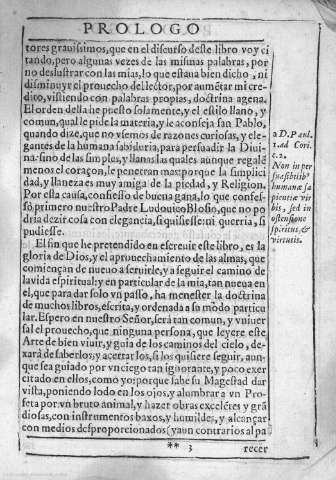 PROLOGO
tores grauissimos, que en el discurso deste libro voy ci
tando, pero algunas vezes de las mismas palabras, por
no deslustrar con las mias, lo que estaua bien dicho, ni
disminuyr el prouecho del lector, por aumẽtar mi cre
dito, vistiendo con palabras propias, doctrina agena.
El orden della he puesto solamente, y el estilo llano, y
comun, qual le pide la materia, y le aconseja san Pablo,
quando dize, que no vsemos de razones curiosas, y ele-
gantes de la humana sabiduria, para persuadir la Diui
na: sino de las simples, y llanas las quales aunque regalẽ
menos el coraçon, le penetran mas: porque la simplici
dad, y llaneza es muy amiga de la piedad, y Religion.
Por esta causa, confiesso de buena gana, lo que confes-
sò primero nuestro Padre Ludouico Blosio, que no po
dria dezir cosa con elegancia, si quisiesse: ni querria, si
pudiesse.
El fin que he pretendido en escreuir este libro, es la
gloria de Dios, y el aprouechamiento de las almas, que
comiençan de nueuo a seruirle, y a seguir el camino de
la vida espiritual: y en particular de la mia, tan nueua en
el, que para dar solo vn passo, ha menester la doctrina
de muchos libros, escrita, y ordenada a su modo particu
lar. Espero en nuestro Señor, serà tan comun, y vniuer
sal el prouecho, que ninguna persona, que leyere este
Arte de bien viuir, y guia de los caminos del cielo, de-
xarà de saberlos, y acertarlos, si los quisiere seguir, aun-
que sea guiado por vn ciego tan ignorante, y poco exer
citado en ellos, como yo: porque sabe su Magestad dar
vista, poniendo lodo en los ojos, y alumbrar a vn Pro-
feta por vn bruto animal, y hazer obras excelẽtes y grã
diosas, con instrumentos baxos, y humildes, y alcançar
con medios desproporcionados (y aun contrarios al pa
** 3
recer
a D. Paul.
1. ad Cori.
c. 2.
Non in per
suasibilib⁹
humanæ sa
pientiæ ver
bis, sed in
ostensione
spiritus, &
virtutis.